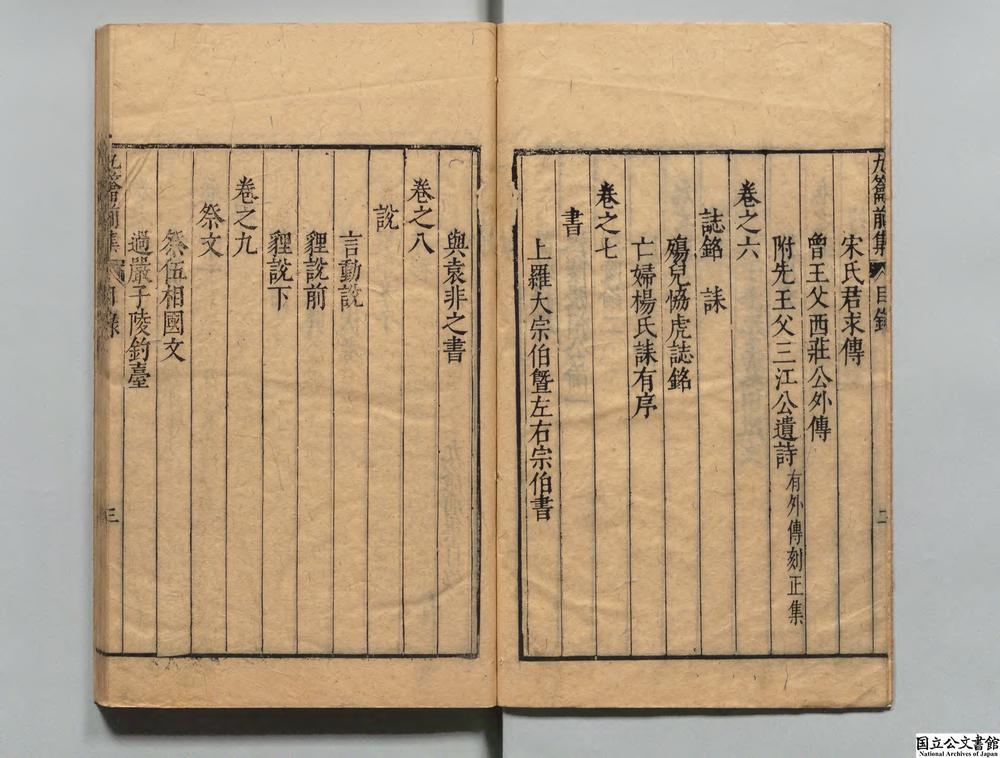 九籥前集 目錄 二
宋氏君求傳
曾王父西莊公外傳
附先王父三江公遺詩 有外傳刻正集
卷之六
誌銘 誄
殤兒恊虎誌銘
亡婦楊氏誄有序
卷之七
書
上羅大宗伯曁左右宗伯書
與袁非之書
卷之八
說
言動說
貍說前
貍說下
卷之九
祭文
祭伍相國文
過嚴子陵釣臺
九籥前集 目錄 三
国立公文書館
National Archives of Japan